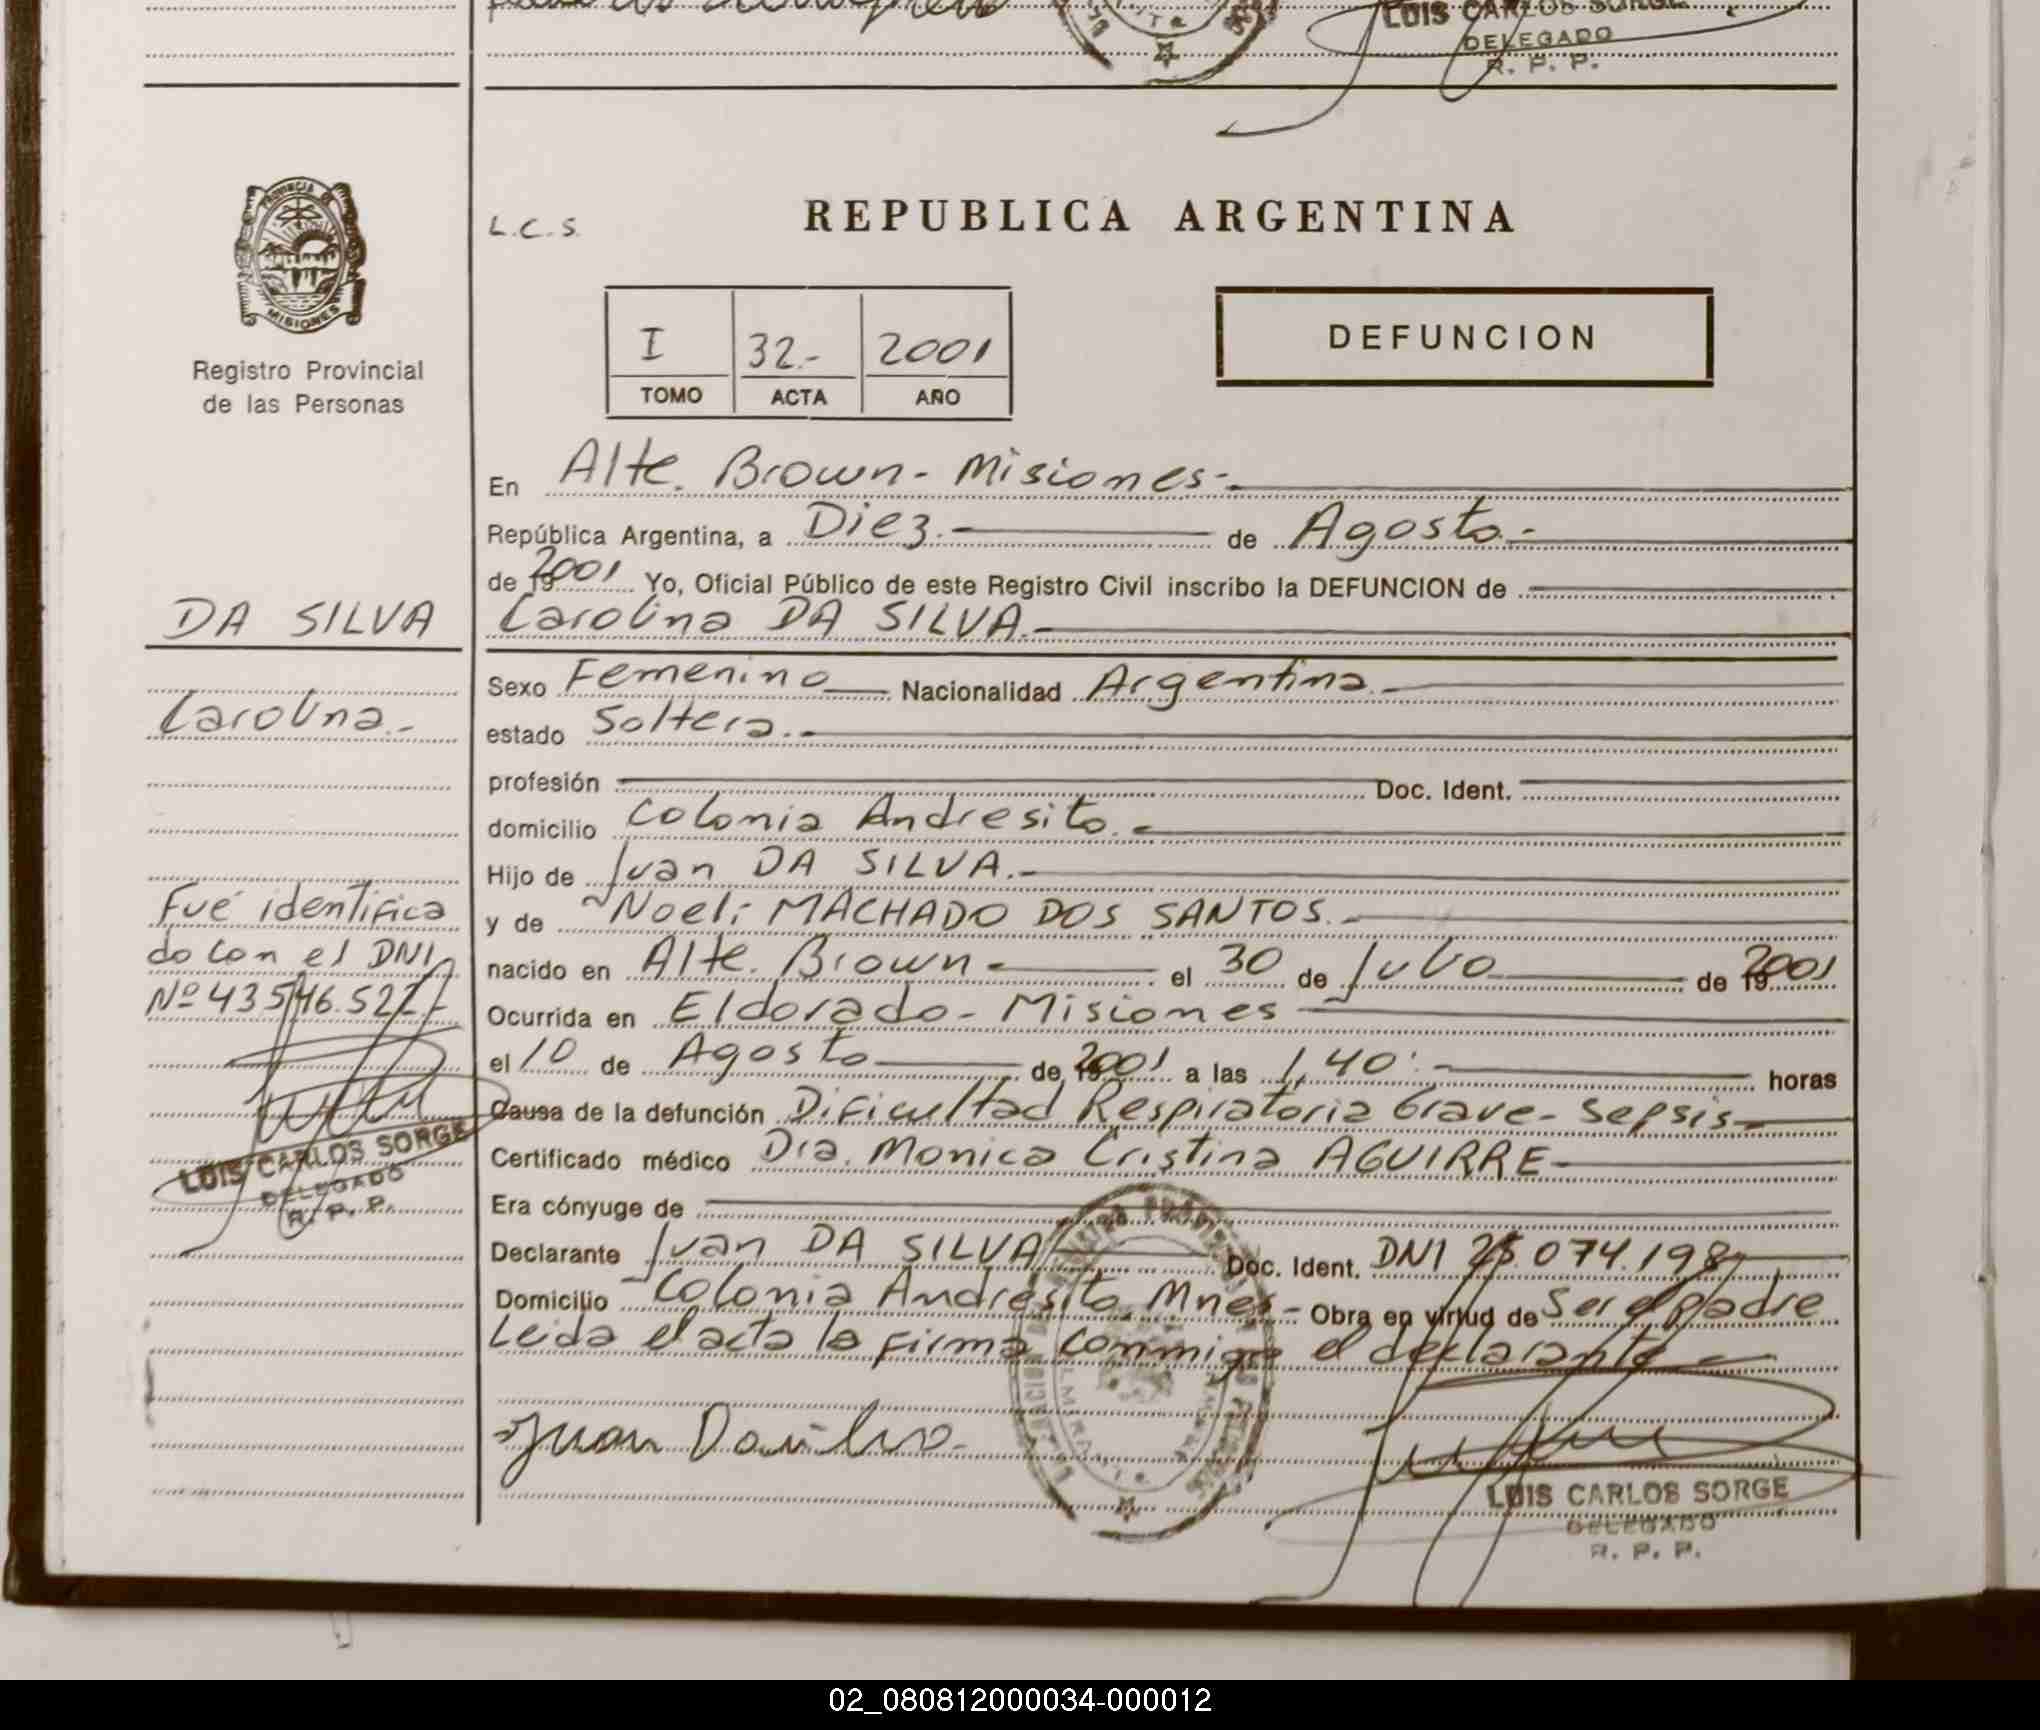 LUIS CARLOS SORGE
DELEGADO
R. P. P.
PROVINCIA DE
MISIONES
Registro Provincial
de las Personas
L.C.S.
REPUBLICA ARGENTINA
I 32.- 2001
TOMO ACTA AÑO
DEFUNCION
En Alte. Brown - Misiones -
República Argentina, a Diez.- de Agosto.-
de 19 2001 Yo, Oficial Público de este Registro Civil inscribo la DEFUNCION de
Carolina DA SILVA.-
DA SILVA
Carolina.-
Sexo Femenino Nacionalidad Argentina.-
estado Soltera.-
profesión Doc. Ident.
domicilio Colonia Andresito.-
Hijo de Juan DA SILVA.-
y de Noeli MACHADO DOS SANTOS.-
nacido en Alte. Brown - el 30 de Julio de 19 2001
Ocurrida en Eldorado - Misiones
el 10 de Agosto de 19 2001 a las 1,40'.- horas
Causa de la defunción Dificultad Respiratoria Grave - Sepsis
Certificado médico Dra. Monica Cristina AGUIRRE-
Era cónyuge de
Declarante Juan DA SILVA Doc. Ident. DNI 25.074.198
Domicilio Colonia Andresito Mnes - Obra en virtud de Ser el padre
Leida el acta la firma conmigo el declarante
Fué identifica
do con el DNI
Nº 43.546.522
LUIS CARLOS SORGE
DELEGADO
R. P. P.
Juan Da silva
LUIS CARLOS SORGE
DELEGADO
R. P. P.
02_080812000034-000012